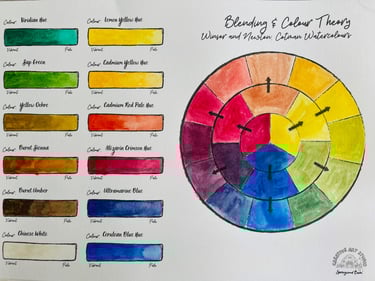 Blending & Colour Theory
Winsor and Newton Cotman Watercolours
Colour Viridian Hue
Vibrant Pale
Colour Lemon Yellow Hue
Vibrant Pale
Colour Sap Green
Vibrant Pale
Colour Cadmium Yellow Hue
Vibrant Pale
Colour Yellow Ochre
Vibrant Pale
Colour Cadmium Red Pale Hue
Vibrant Pale
Colour Burnt Sienna
Vibrant Pale
Colour Alizarin Crimson Hue
Vibrant Pale
Colour Burnt Umber
Vibrant Pale
Colour Ultramarine Blue
Vibrant Pale
Colour Chinese White
Vibrant Pale
Colour Cerulean Blue Hue
Vibrant Pale
CREATIVE ART STUDIO